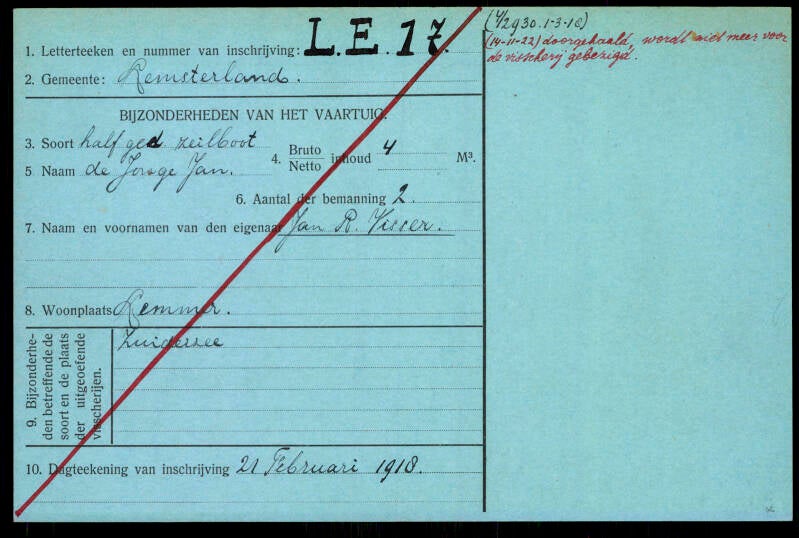 1. Letterteeken en nummer van inschrijving: L.E. 17.
2. Gemeente: Lemsterland.
BIJZONDERHEDEN VAN HET VAARTUIG.
3. Soort half ged zeilboot
4. Bruto Netto inhoud 4 M³.
5 Naam de Jonge Jan.
6. Aantal der bemanning 2.
7. Naam en voornamen van den eigenaar Jan R. Visser.
8. Woonplaats Lemmer.
9. Bijzonderhe-
den betreffende de
soort en de plaats
der uitgeoefende
visscherijen.
Zuiderzee
10. Dagteekening van inschrijving 21 Februari 1918.
(4/2930.1-3-18)
(14-11-22) doorgehaald, wordt niet meer voor
de visscherij gebezigd.